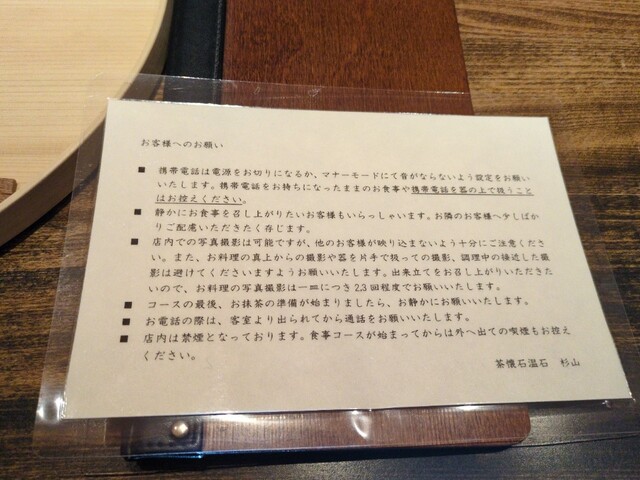 お客様へのお願い
■ 携帯電話は電源をお切りになるか、マナーモードにて音がならないよう設定をお願い
いたします。携帯電話をお持ちになったままのお食事や携帯電話を器の上で扱うこと
はお控えください。
■ 静かにお食事を召し上がりたいお客様もいらっしゃいます。お隣のお客様へ少しばか
りご配慮いただきたく存じます。
■ 店内での写真撮影は可能ですが、他のお客様が映り込まないよう十分にご注意くださ
い。また、お料理の真上からの撮影や器を片手で扱っての撮影、調理中の接近した撮
影は避けてくださいますようお願いいたします。出来立てをお召し上がりいただきた
いので、お料理の写真撮影は一皿につき2,3回程度でお願いいたします。
■ コースの最後、お抹茶の準備が始まりましたら、お静かにお願いいたします。
■ お電話の際は、客室より出られてから通話をお願いいたします。
■ 店内は禁煙となっております。食事コースが始まってからは外へ出ての喫煙もお控え
ください。
茶懐石温石 杉山